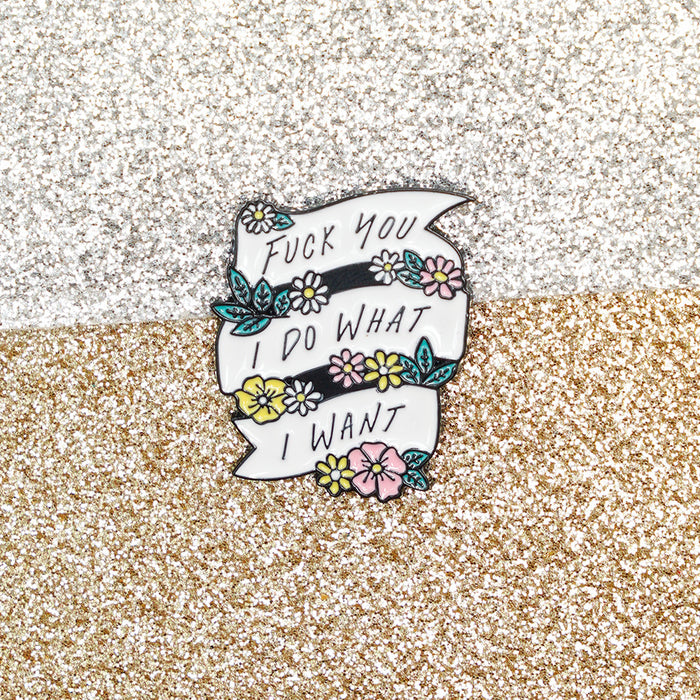 FUCK YOU
I DO WHAT
I WANT